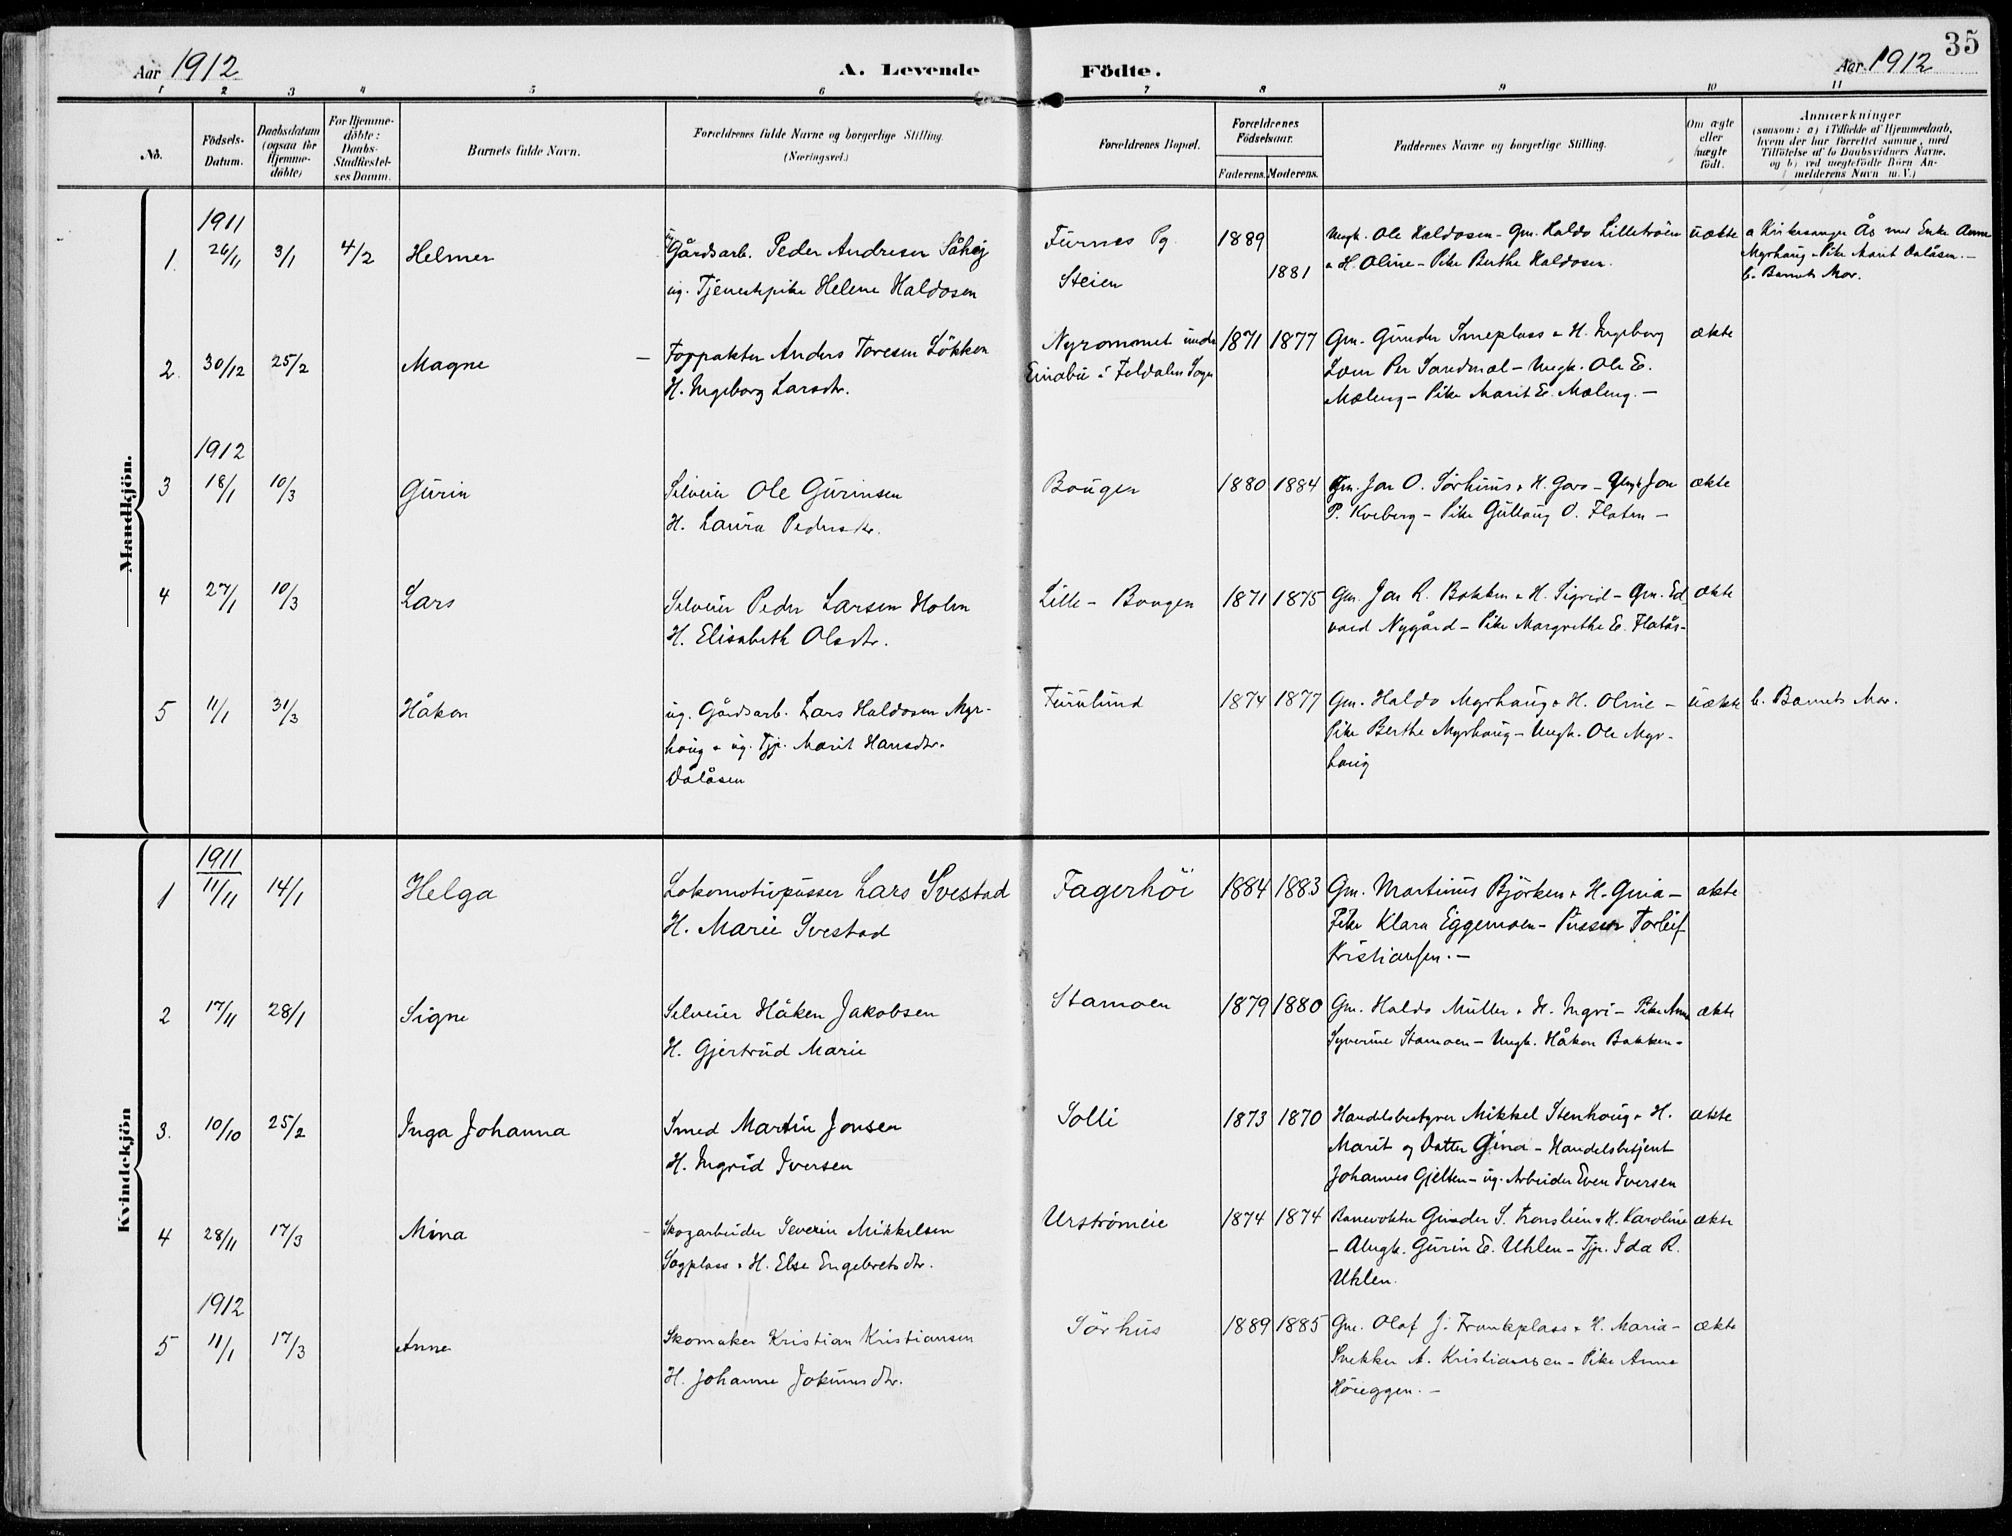 35
Aar 1912
A. Levende
Födte.
Aar 1912
1 2 3 4 5 6 7 8 9 10 11
No.
Födsels-
Datum.
Daabsdatum
(ogsaa for
Hjemme-
döbte)
For Hjemme-
döbte:
Daabs-
Stadfæstel-
ses Datum.
Barnets fulde Navn.
Forældrenes fulde Navne og borgerlige Stilling.
(Næringsvei.)
Forældrenes Bopæl.
Forældrenes
Födselsaar.
Faderens. Moderens.
Faddernes Navne og borgerlige Stilling.
Om ægte
eller
uægte
födt.
Anmærkninger
(saasom: a) i Tilfælde af Hjemmedaab,
hvem der har forrettet samme, med
Tilföielse af to Daabsvidners Navne,
og b) ved uægtefödte Börn An-
melderens Navn m.V.)
Mandkjön.
1911
1. 26/11 3/1 4/2 Helmer
ug. Gårdsarb. Peder Andresen
ug. Tjenestpike Helene Haldosen
Furnes Pg.
Steien
1889
1881
Ungk. Ole Haldosen - Gm. Haldo Lilleströen
& H. Oline - Pike Berthe Haldosen.
uækte
a Kirkesanger Ås med Enke Anne
Myrhaug - Pike Marit Dalåsen. -
b. Barnets Mor.
2. 30/12 25/2 Magne -
Anders Toresen Lökken
H. Ingeborg Larsdtr.
Nyrommet under
Einabu i Foldalen Sogn
1871 1877
Gm. Gunder Smeplass & H. Ingeborg
Per Sandmæl - Ungk. Ole E.
Mæleng - Pike Marit E. Mæleng. -
ækte
1912
3 18/1 10/3 Gurin
Selveier Ole Gurinsen
H. Laura Pedersdtr.
Bougen
1880 1884
Gm. Jon O. Sörhuus & H. Goro - Ungk Jon
P. Kveberg - Pike Gullaug O. Flaten -
ækte
4 27/1 10/3 Lars
Selveier Peder Larsen Holm
H. Elisabeth Olsdtr.
Lille - Bougen
1871 1875
Gm. Jon R. Bakken & H. Sigrid - Gm. Ed
vard Nygård - Pike Margrethe E. Flatås -
ækte
5 11/1 31/3 Håkon
ug. Gårdsarb. Lars Haldosen Myr-
haug & ug. Tjp. Marit Hansdtr.
Dalåsen
Furulund
1874 1877
Gm. Haldo Myrhaug & H. Oline -
Pike Berthe Myrhaug - Ungk. Ole Myr-
haug
uækte
b. Barnets Mor.
Kvindekjön
1911
1 11/11 14/1 Helga
Lokomotivpusser Lars Svestad
H. Marie Svestad
Fagerhöi
1884 1883
Gm. Martinus Björken & H. Gina -
Pike Klara Eggemoen - Pusser Torleif
Kristiansen. -
ækte
2 17/11 28/1 Signe
Selveier Håken Jakobsen
H. Gjertrud Marie
Stamoen
1879 1880
Gm. Haldo Müller & H. Ingri - Pike Anna
Syverine Stamoen - Ungk. Håkon Bakken -
ækte
3. 10/10 25/2 Inga Johanna
Smed Martin Jonsen
H. Ingrid Iversen
Solli
1873 1870
Handelsbestyrer Mikkel Stenhaug & H.
Marit og Datter Gina - Handelsbetjent
Johannes Gjelten - ug. Arbeider Even Iversen
ækte
4 28/11 17/3 Mina
Skogarbeider Severin Mikkelsen
Sagplass & H. Else Engebretsdtr.
Urströmeie
1874 1874
Banevokter Gunder S. Tronslien & H. Karoline
- Ungk. Gurin E. Uhlen - Tjp. Ida R.
Uhlen.
ækte
1912
5 11/1 17/3 Anne
Skomaker Kristian Kristiansen
H. Johanne Jokumsdtr.
Sörhus
1889 1885
Gm. Olaf J. Trankplass & H. Maria -
Snekker A. Kristiansen - Pike Anne
Höieggen. -
ækte